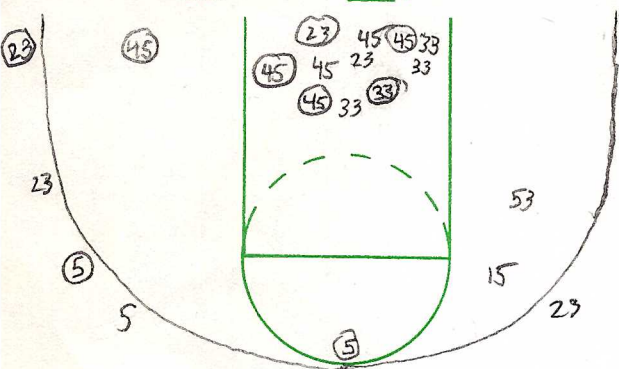 23
45
23
45
45
33
45
45
23
33
45
33
33
23
53
5
15
5
23
5